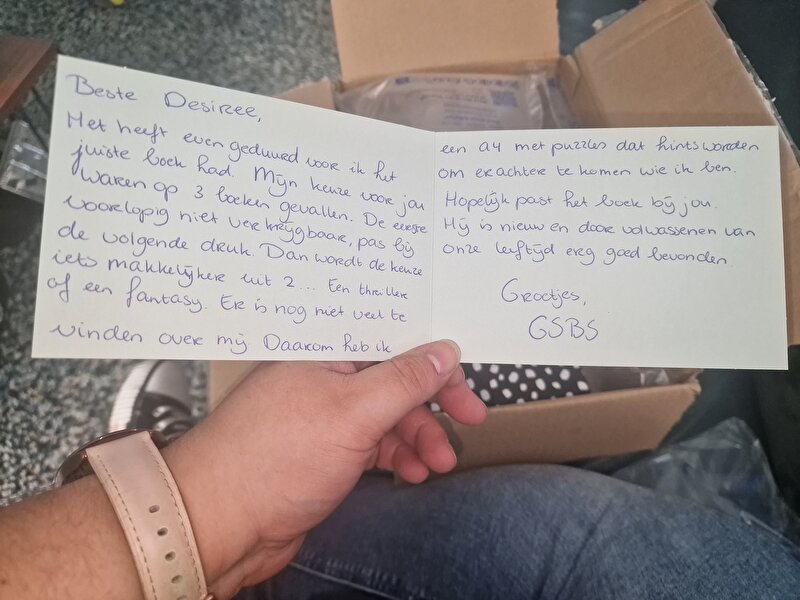 Beste Desiree,
Het heeft even geduurd voor ik het
juiste boek had. Mijn keuze voor jou
waren op 3 boeken gevallen. De eerste
voorlopig niet verkrijgbaar, pas bij
de volgende druk. Dan wordt de keuze
iets makkelijker uit 2... Een thriller
of een fantasy. Er is nog niet veel te
vinden over mij Daarom heb ik
een a4 met puzzles dat hints worden
om erachter te komen wie ik ben.
Hopelijk past het boek bij jou.
Hij is nieuw en door volwassenen van
onze leeftijd erg goed bevonden.
Groetjes,
GSBS